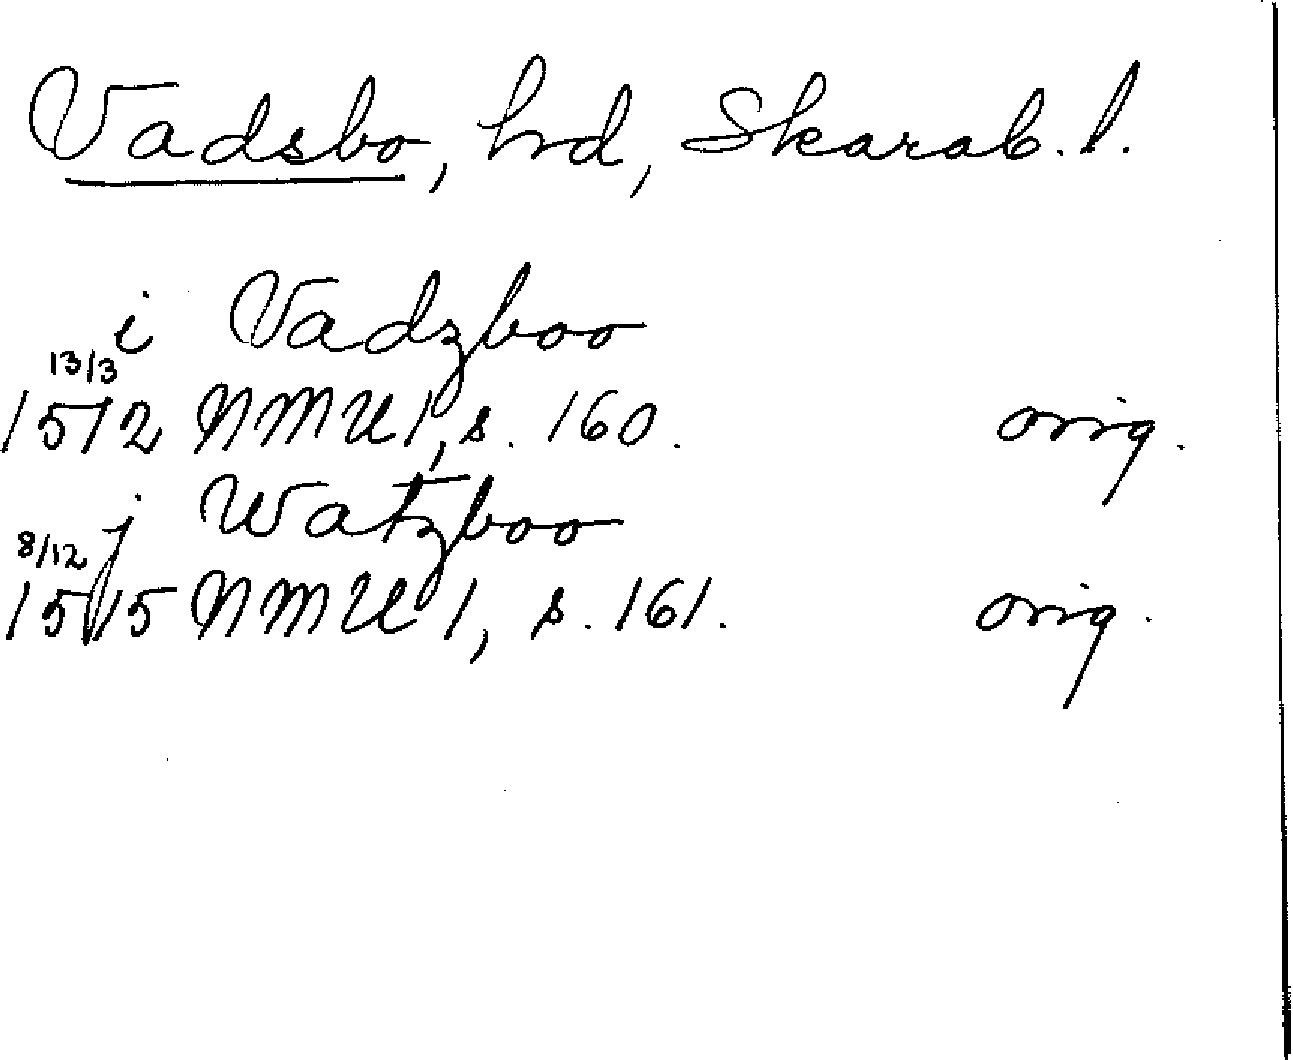 Vadsbo, hd, Skarab. l.
i Vadzboo
13/3
1512 NMU1, s. 160. orig.
j Watzboo
8/12
1515 NMU 1, s. 161. orig.